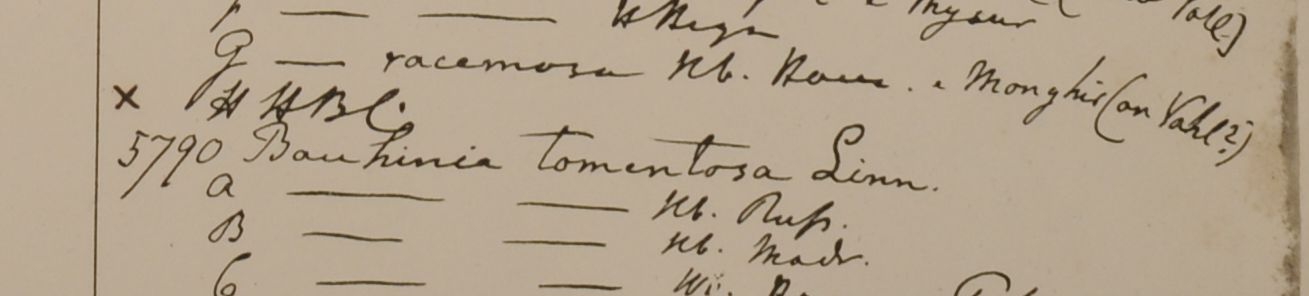 F — — HBeng e Mysur Vahl)
G — racemosa Hb. Ham. e Monghir (an Vahl?)
× H HBC.
5790 Bauhinia tomentosa Linn.
a — — Hb. Russ.
B — — Hb. Madr.
C — —